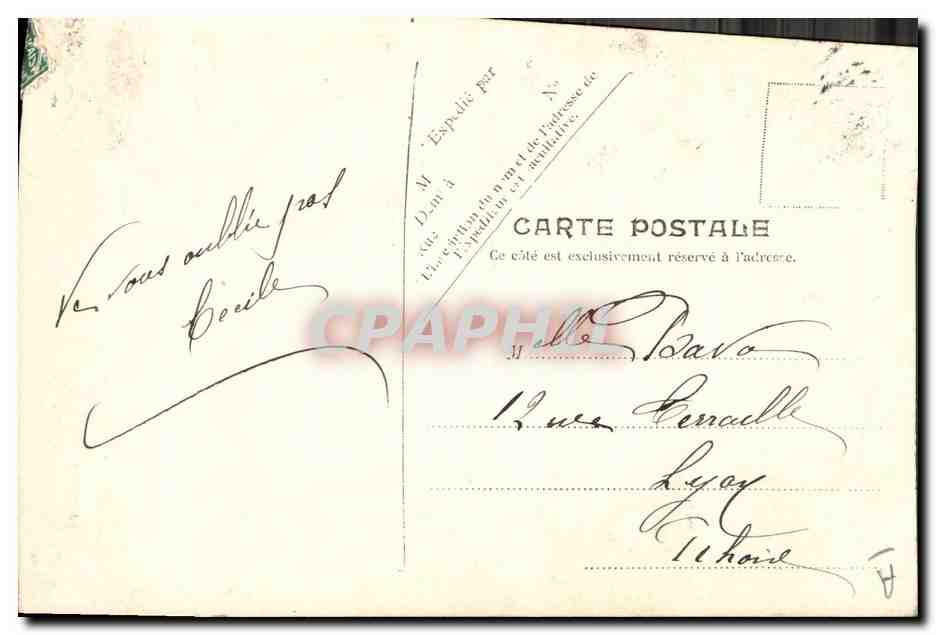 Ne vous oublie pas
Cécile
Expédié par
M
Dem' à
Rue
No
L'Inscription du nom et de l'adresse de
l'Expéditeur est facultative.
CARTE POSTALE
Ce côté est exclusivement réservé à l'adresse.
Melle Bavo
12 rue Terraille
Lyon
Rhône
CPAPHIL
A